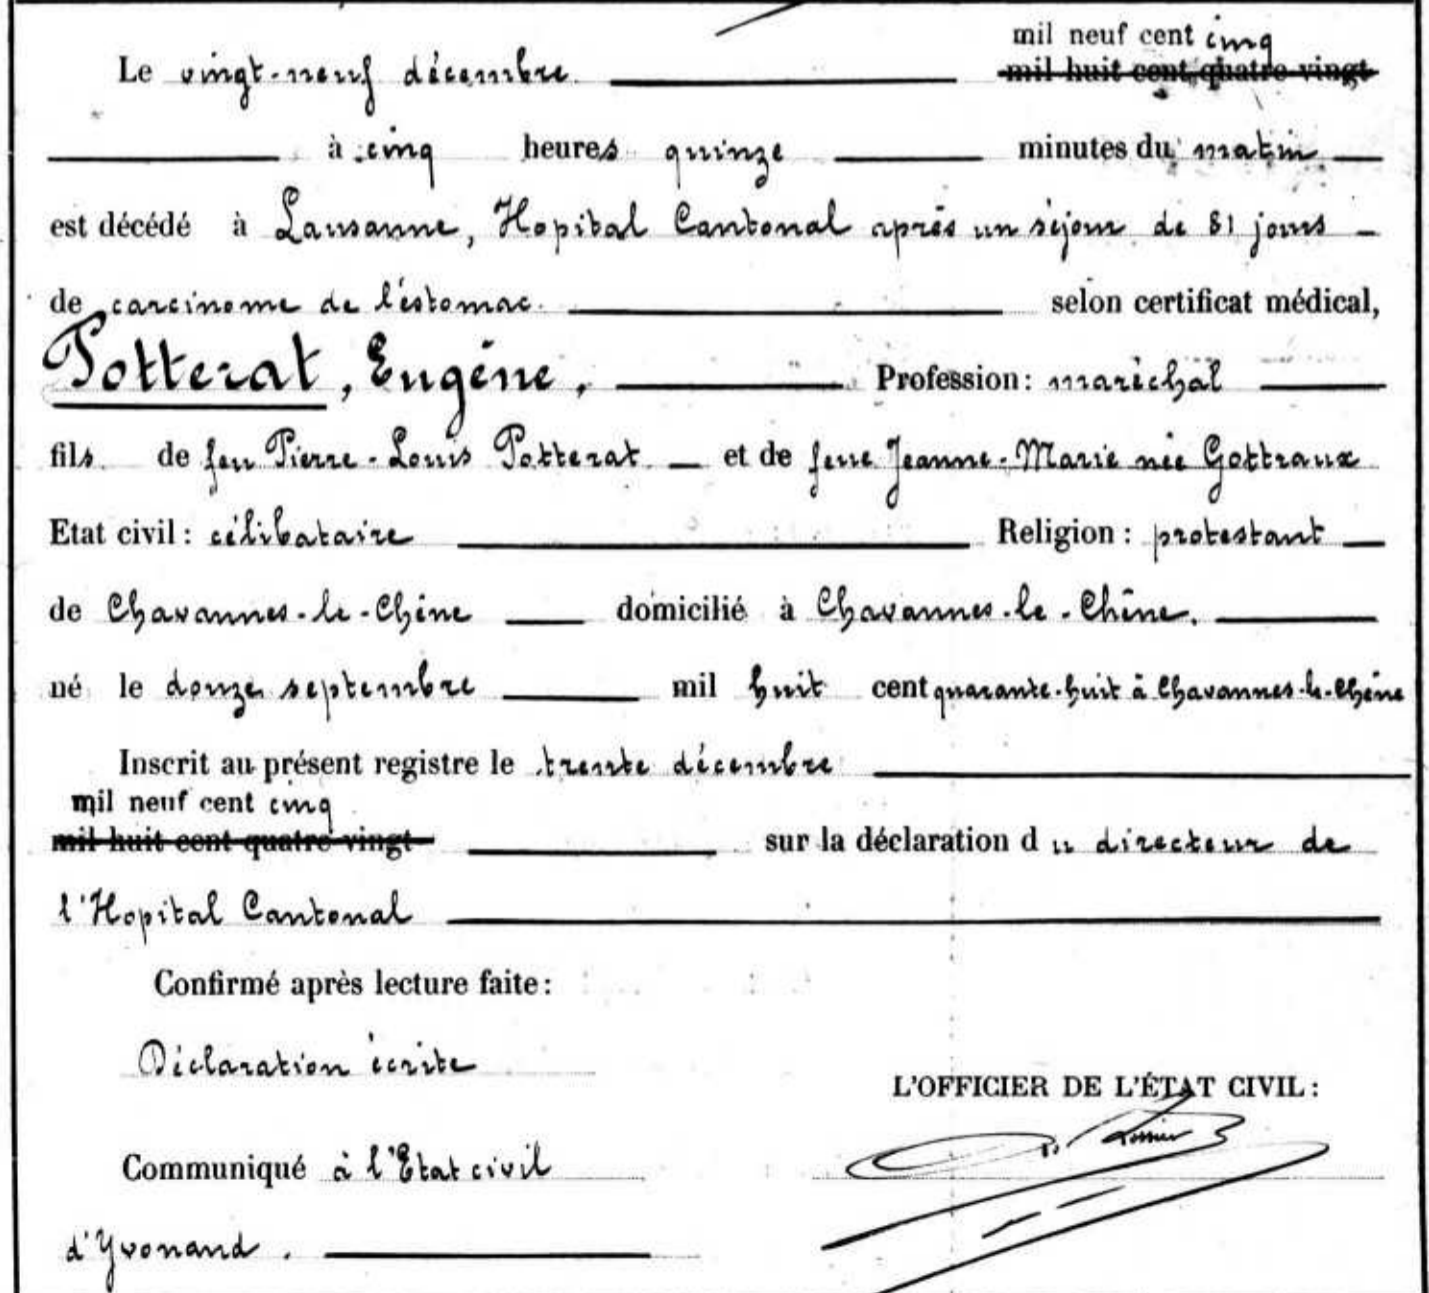 mil neuf cent cinq
Le vingt-neuf décembre mil huit cent quatre vingt
à cinq heures quinze minutes du matin
est décédé à Lausanne, Hopital Cantonal après un séjour de 81 jours
de carcinome de l'estomac. selon certificat médical,
Potterat, Eugène, Profession: maréchal
fils de feu Pierre-Louis Potterat et de feue Jeanne-Marie née Gottraux
Etat civil: célibataire Religion: protestant
de Chavannes-le-Chêne domicilié à Chavannes-le-Chêne.
né le douze septembre mil huit cent quarante-huit à Chavannes-le-Chêne
Inscrit au présent registre le trente décembre
mil neuf cent cinq
mil huit cent quatre vingt sur la déclaration du directeur de
l'Hopital Cantonal
Confirmé après lecture faite:
Déclaration écrite
L'OFFICIER DE L'ÉTAT CIVIL:
Communiqué à l'Etat civil
d'Yvonand.